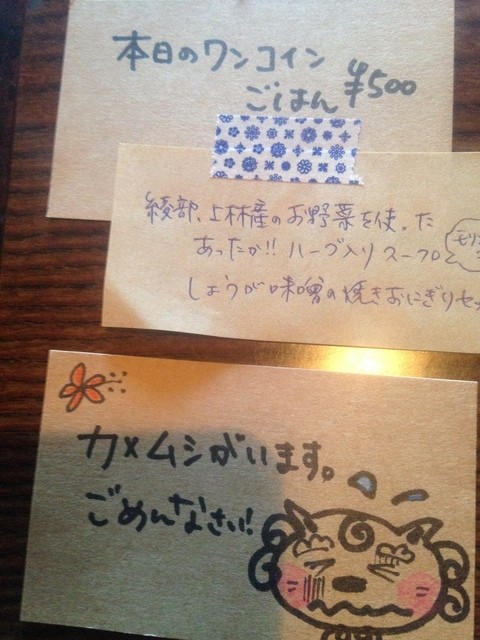 本日のワンコイン
ごはん ¥500
綾部、上林産のお野菜を使った
あったか!! ハーブ入りスープと
しょうが味噌の焼きおにぎりセッ
カメムシがいます。
ごめんなさい!